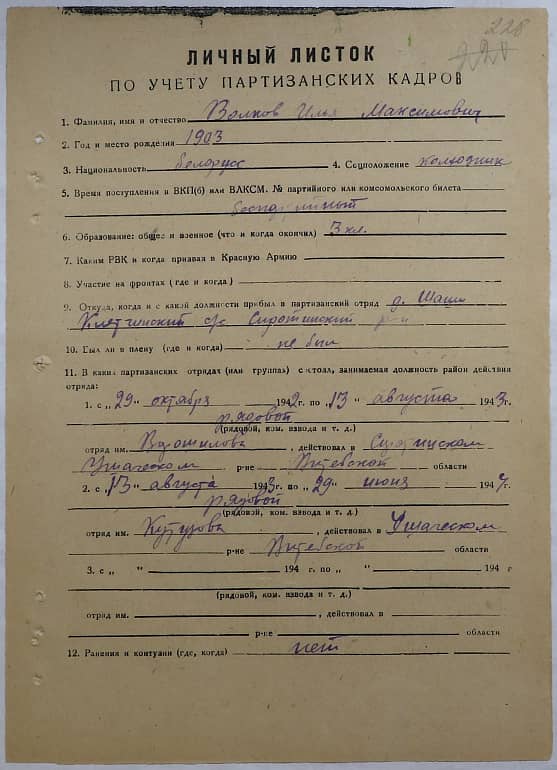 228
ЛИЧНЫЙ ЛИСТОК
ПО УЧЕТУ ПАРТИЗАНСКИХ КАДРОВ
1. Фамилия, имя и отчество Волков Илья Максимович
2. Год и место рождения 1903
3. Национальность белорусс 4. Соцположение колхозник
5. Время поступления в ВКП(б) или ВЛКСМ. № партийного или комсомольского билета
беспартийный
6. Образование: общее и военное (что и когда окончил) 3 кл.
7. Каким РВК и когда призван в Красную Армию
8. Участие на фронтах (где и когда)
9. Откуда, когда и с какой должности прибыл в партизанский отряд д.
с/с Сиротинский р-н
10. Был ли в плену (где и когда) не был
11. В каких партизанских отрядах (или группах) состоял, занимаемая должность район действия
отряда:
1. с „29" октября 1942 г. по „13" августа 1943 г.
рядовой
(рядовой, ком. взвода и т. д.)
отряд им. Ворошилова, действовал в Сиротинском
Ушачском р-не Витебской области
2. с „13" августа 1943 г. по „29" июня 1944 г.
рядовой
(рядовой, ком. взвода и т. д.)
отряд им. Кутузова, действовал в Ушачском
р-не Витебской области
3. с „ " 194 г. по „ " 194 г
(рядовой, ком. взвода и т. д.)
отряд им. , действовал в
р-не области
12. Ранения и контузии (где, когда) нет